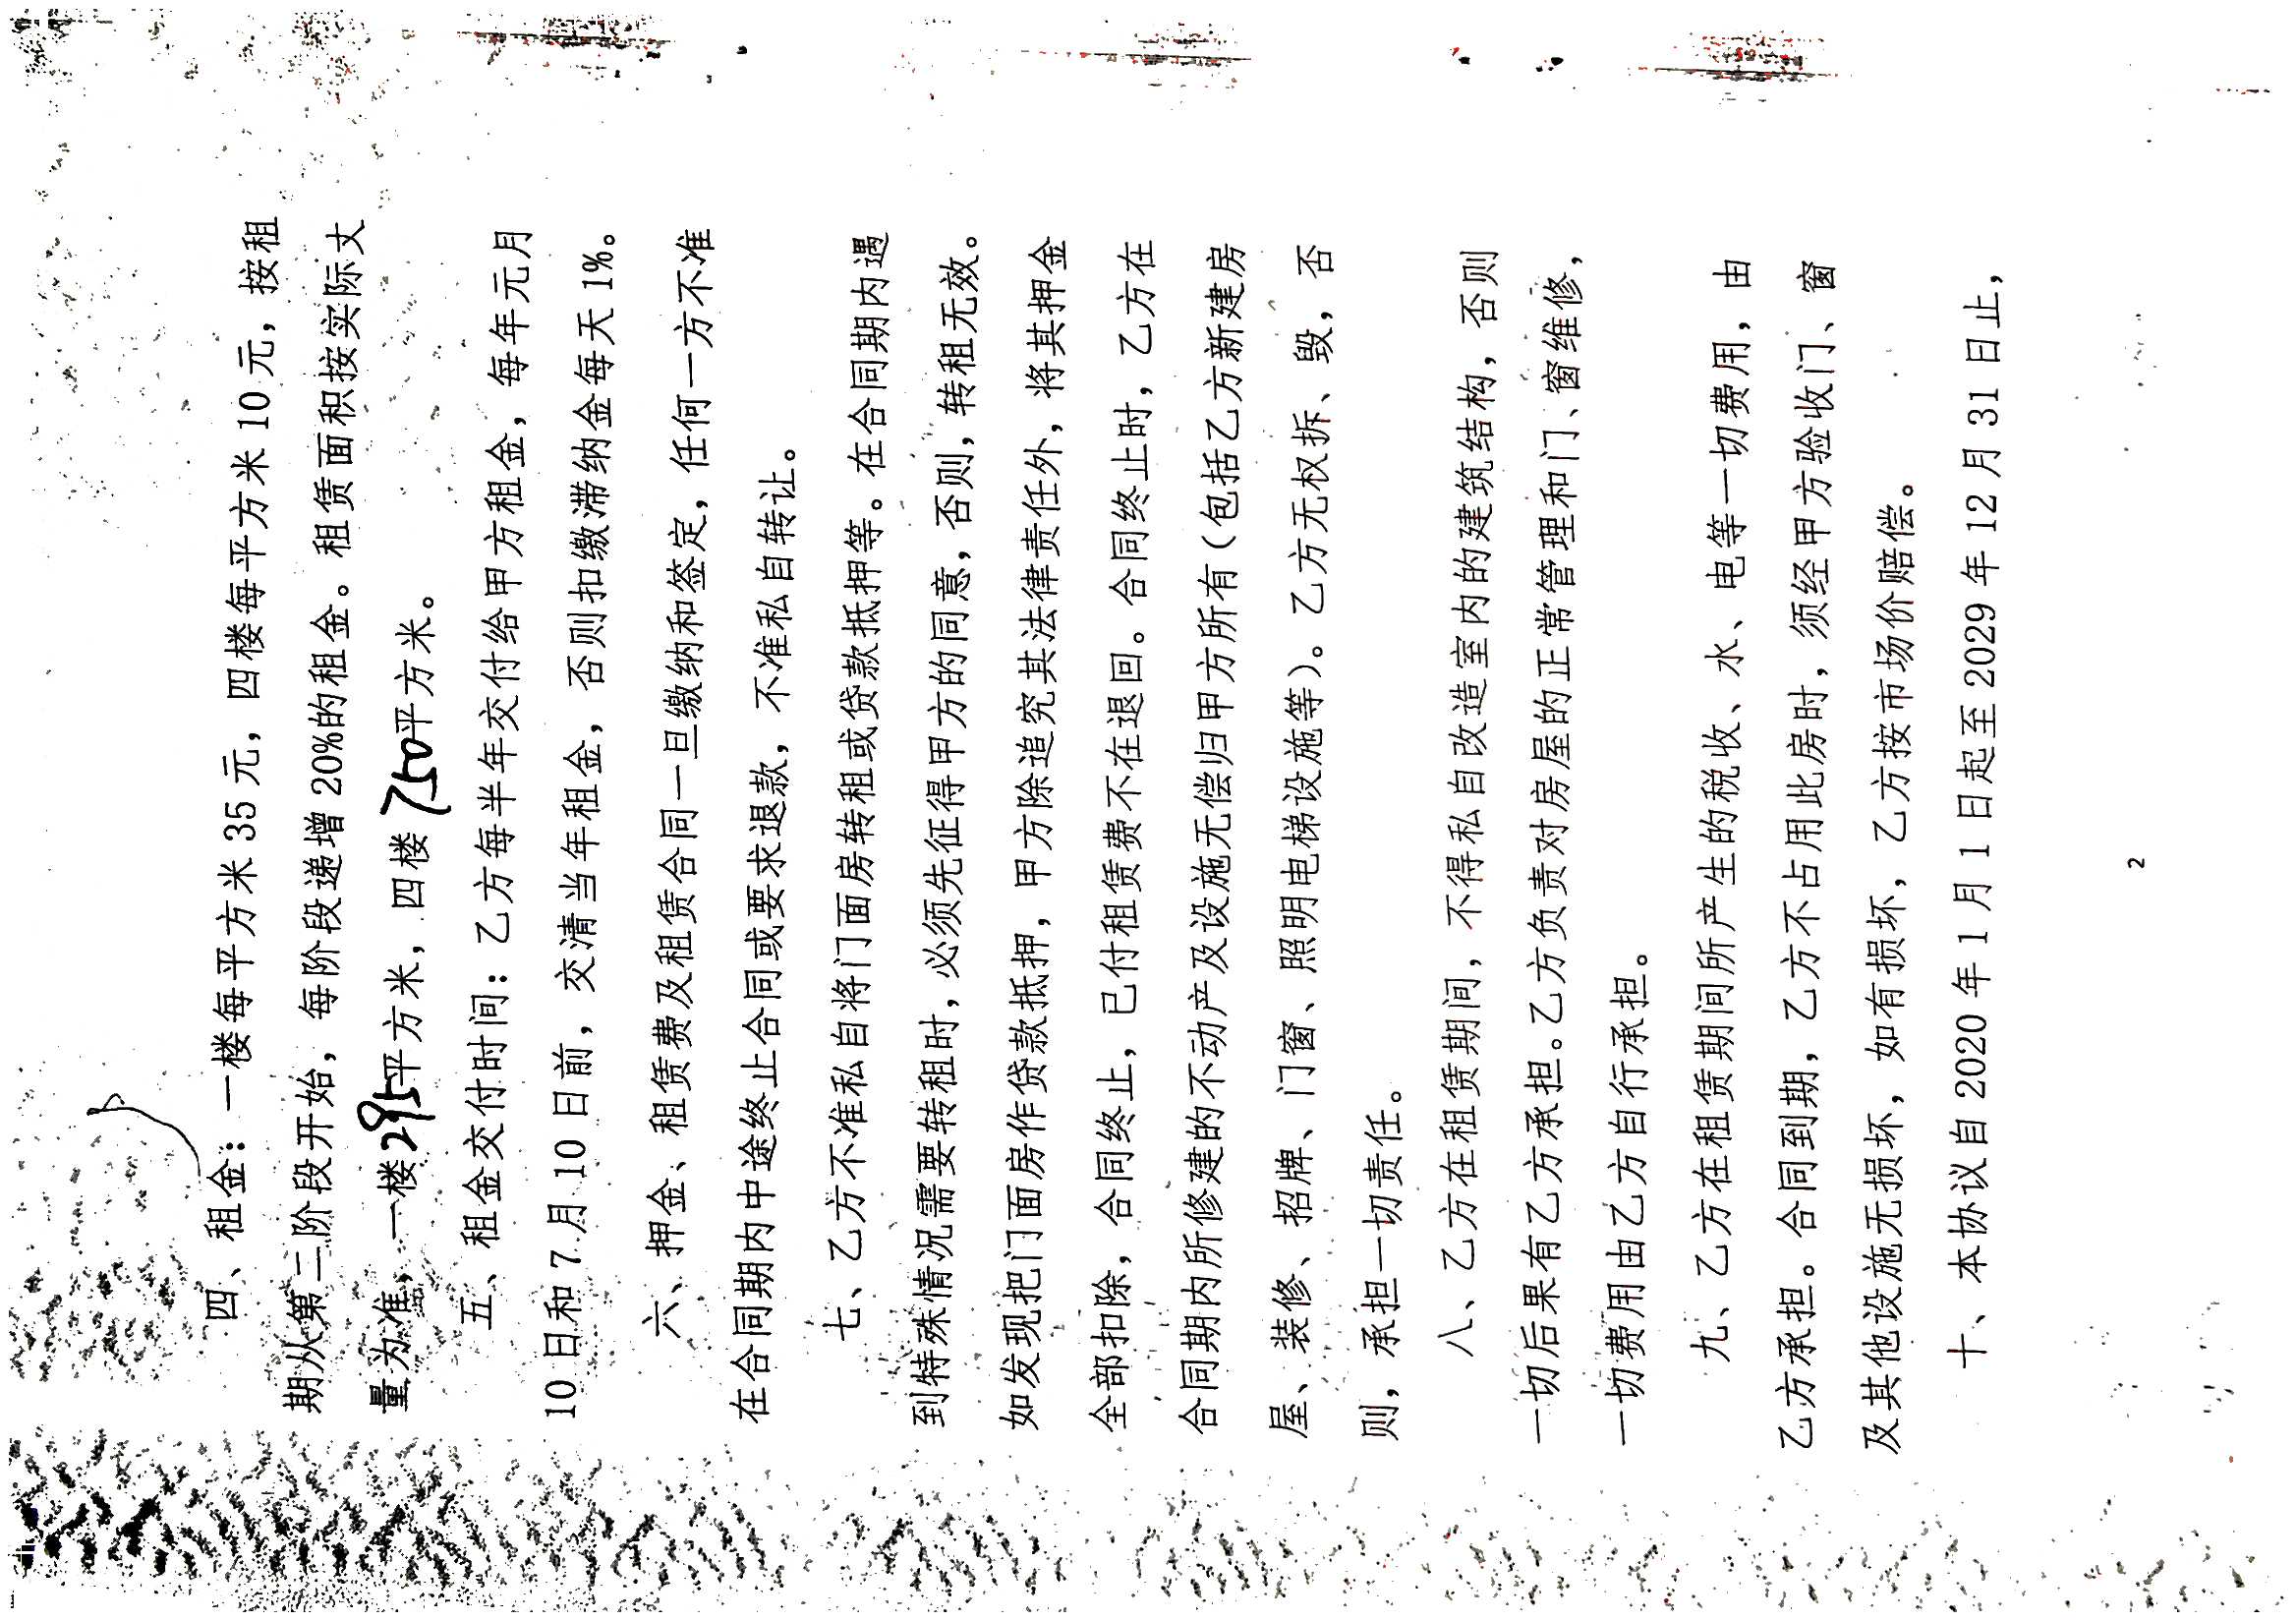 四、租金：一楼每平方米 35 元，四楼每平方米 10 元，按租
期从第二阶段开始，每阶段递增 20%的租金。租赁面积按实际丈
量为准，一楼295平方米，四楼 750平方米。
五、租金交付时间：乙方每半年交付给甲方租金，每年元月
10 日和 7 月 10 日前，交清当年租金，否则扣缴滞纳金每天 1%。
六、押金、租赁费及租赁合同一旦缴纳和签定，任何一方不准
在合同期内中途终止合同或要求退款，不准私自转让。
七、乙方不准私自将门面房转租或贷款抵押等。在合同期内遇
到特殊情况需要转租时，必须先征得甲方的同意，否则，转租无效。
如发现把门面房作贷款抵押，甲方除追究其法律责任外，将其押金
全部扣除，合同终止，已付租赁费不在退回。合同终止时，乙方在
合同期内所修建的不动产及设施无偿归甲方所有（包括乙方新建房
屋、装修、招牌、门窗、照明电梯设施等）。乙方无权拆、毁，否
则，承担一切责任。
八、乙方在租赁期间，不得私自改造室内的建筑结构，否则
一切后果有乙方承担。乙方负责对房屋的正常管理和门、窗维修，
一切费用由乙方自行承担。
九、乙方在租赁期间所产生的税收、水、电等一切费用，由
乙方承担。合同到期，乙方不占用此房时，须经甲方验收门、窗
及其他设施无损坏，如有损坏，乙方按市场价赔偿。
十、本协议自 2020 年 1 月 1 日起至 2029 年 12 月 31 日止，
2